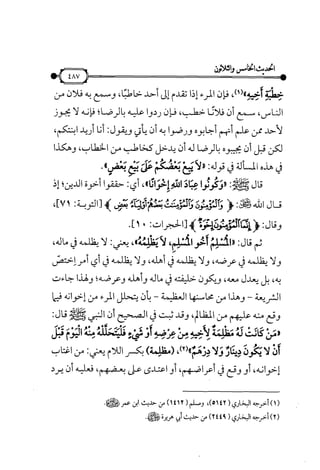 الحديث الخامس والثلاثون
٤٨٧
خطبة أخيه»(١)، فإن المرء إذا تقدم إلى أحد خاطبًا، وسمع به فلان من
الناس، سمع أن فلانًا خطب، فإن ردوا عليه بالرضا؛ فإنه لا يجوز
لأحد ممن علم أنهم أجابوه ورضوا به أن يأتي ويقول: أنا أريد ابنتكم،
لكن قبل أن يجيبوه بالرضا له أن يدخل كخاطب من الخطاب، وهكذا
في هذه المسألة في قوله: «ولا يبع بعضكم على بيع بعض».
قال ﷺ: «وكونوا عباد الله إخوانًا»، أي: حققوا أخوة الدين؛ إذ
قال الله: ﴿ والمؤمنون والمؤمنت بعضهم أولياء بعض ﴾ [التوبة: ٧١]،
وقال: ﴿ إنما المؤمنون إخوة ﴾ [الحجرات: ١٠].
ثم قال: «المسلم أخو المسلم، لا يظلمه»، يعني: لا يظلمه في ماله،
ولا يظلمه في عرضه، ولا يظلمه في أهله، ولا يظلمه في أي أمر اختص
به، بل يعدل معه، ويكون خليفته في ماله وأهله وعرضه؛ ولهذا جاءت
الشريعة - وهذا من محاسنها العظيمة - بأن يتحلل المرء من إخوانه فيما
وقع منه عليهم من المظالم، وقد ثبت في الصحيح أن النبي ﷺ قال:
«من كانت له مظلمة لأخيه من عرضه أو شيء فليتحلله منه اليوم قبل
أن لا يكون دينار ولا درهم»(٢)، (مظلمة) بكسر اللام يعني: من اغتاب
إخوانه، أو وقع في أعراضهم، أو اعتدى على بعضهم، فعليه أن يرد
(١) أخرجه البخاري (٥١٤٢)، ومسلم (١٤١٢) من حديث ابن عمر
(٢) أخرجه البخاري (٢٤٤٩) من حديث أبي هريرة